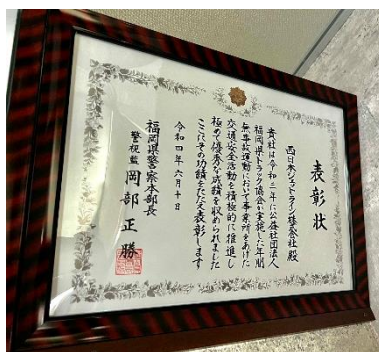 表彰状
西日本ジェットライン株式会社殿
貴社は令和三年に公益社団法人
福岡県トラック協会が実施した年間
無事故運動において事業所をあげた
交通安全活動を積極的に推進し
極めて優秀な成績を収められました
ここにその功績をたたえ表彰します
令和四年六月十日
福岡県警察本部長
警視監 岡部正勝